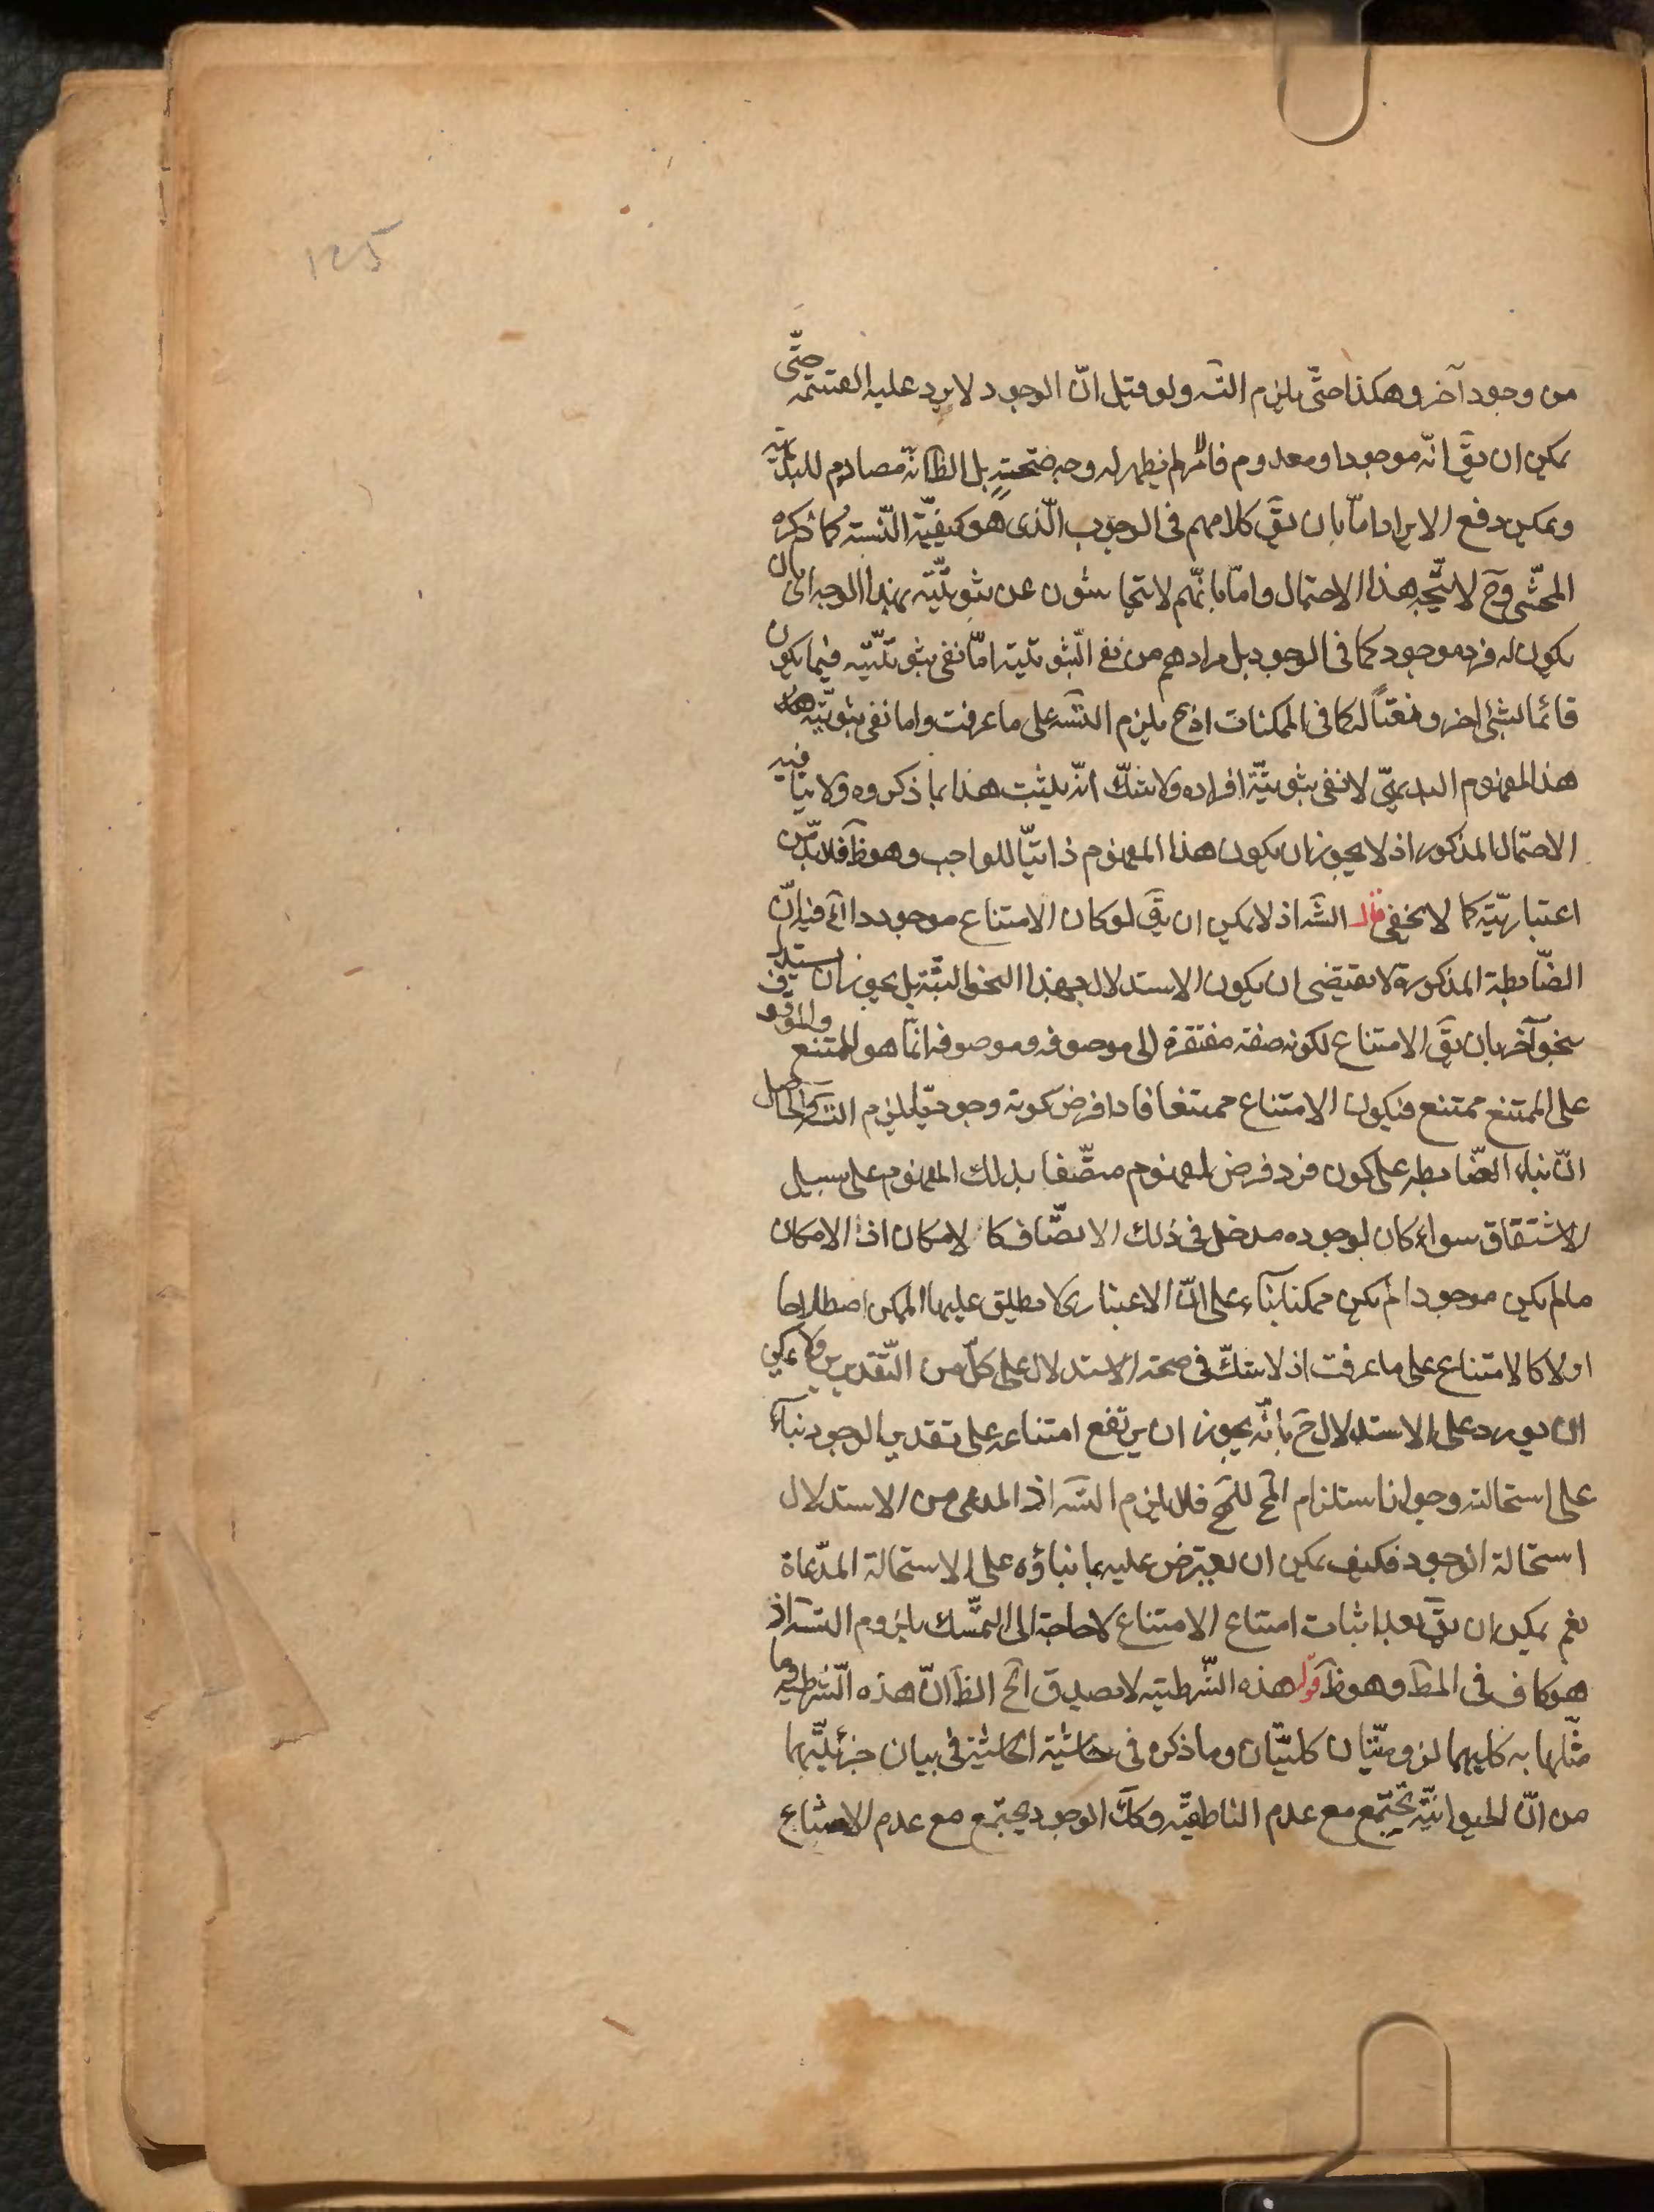 ١٢٥
من وجود آخر وهكذا حتّى يلزم التسہ ولو قيل انّ الوجود لا يرد عليه القسمة حتّى
يمكن ان يقَ انّه موجود او معدوم فالامر لم يظهر له وجه صحّته بل الظ انّه مصادم للبداهة
ويمكن دفع الايراد امّا بان يقَ كلامهم فى الوجوب الّذى هو كيفيّة النّسبة كما ذكره
المحشّى وحَ لا يتّجه هذا الاحتمال وامّا بانّهم لا يتحاشون عن ثبوتيّته بهذا الوجه اى بان
يكون له فرد موجود كما فى الوجود بل مرادهم من نفى الثّبوتية امّا نفى ثبوتيّته فيما يكون
قائما لشئ اخر ونعتًا له كما فى الممكنات اذ حَ يلزم التسہ على ما عرفت واما نفى ثبوتيّة
هذا المفهوم البديهىّ لا نفى ثبوتيّة افراده ولا شكّ انّه يثبت هذا بما ذكروه ولا ينافيه
الاحتمال المذكور اذ لا يجوز ان يكون هذا المفهوم ذاتيّا للواجب وهو ظَ فلا بدّ من
اعتباريّته كما لا يخفى قال الشَ اذ لا يمكن ان يقَ لو كان الامتناع موجودا الَخ فيه انّ
الضّابطة المذكورة لا تقتضى ان يكون الاستدلال بهذا النحو البتّة بل يجوز ان يستدلّ
بنحو آخر بان يقَ الامتناع لكونه صفة مفتقرة الى موصوفه وموصوفه انّما هو الممتنع والموقوف
على الممتنع ممتنع فيكون الامتناع ممتنعا فاذا فرض كونه وجوديّا يلزم التسہ والحاصل
انّ بناء الضّابطه على كون فرد فرض لمفهوم متّصفا بذلك المفهوم على سبيل
الاشتقاق سواء كان لوجوده مدخل فى ذلك الاتصّاف كالامكان اذ الامكان
ما لم يكن موجودا لم يكن ممكنا بناء على انّ الاعتبارى لا يطلق عليها الممكن اصطلاحا
اولا كالامتناع على ما عرفت اذ لا شكّ فى صحة الاستدلال على كلّ من التّقديرين ولا يمكن
ان يورد على الاستدلال حَ بانّه يجوز ان يرتفع امتناعه على تقدير الوجود بناء
على استحالته وجواز استلزام المَح للمَح فلا يلزم التسہ اذ المدعى من الاستدلال
استحالة الوجود فكيف يمكن ان يعترض عليه بما بناؤه على الاستحالة المدّعاة
نعم يمكن ان يقَ بعد اثبات امتناع الامتناع لا حاجة الى التمّسك بلزوم التسہ اذ
هو كاف فى المطَ وهو ظَ قوله هذه الشّرطيّه لا تصدق الَخ الظَ انّ هذه الشّرطيّه وما
مثّلها به كليهما لزوميّتان كليّتان وما ذكره فى حاشية الحاشية فى بيان جزئيّتهما
من انّ الحيوانيّة تجتمع مع عدم الناطقيّه وكذَ الوجود يجتمع مع عدم الامتناع